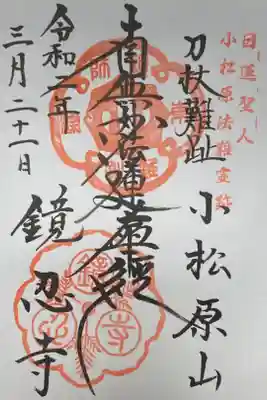 日蓮聖人
小松原法難霊跡
刀杖難趾
小松原山
南無妙法蓮華経
令和二年
三月二十一日
鏡忍寺